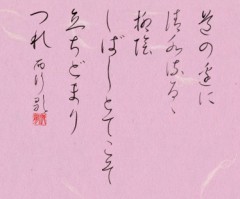 道の邊に
清水流るゝ
柳陰
しばしとてこそ
立ちどまり
つれ